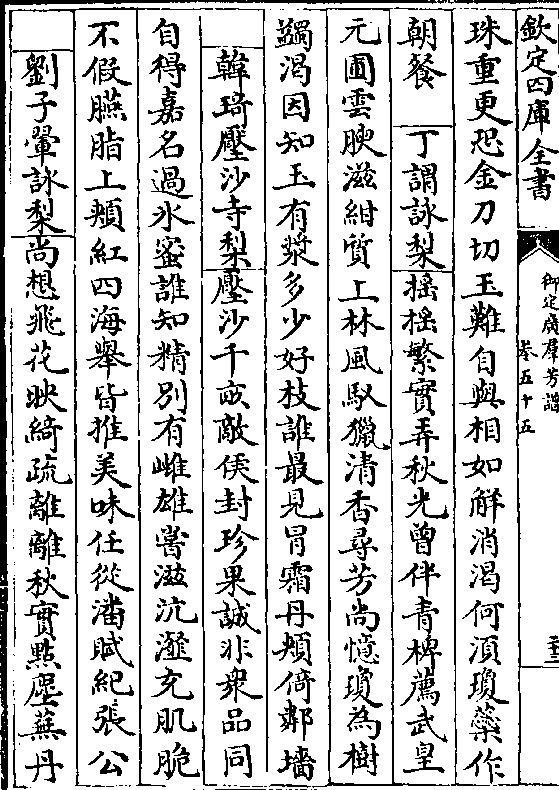 欽定四庫全書
御定廣羣芳譜
卷五十五
珠重更恐金刀切玉難自與相如解消渴何須瓊蘂作
朝餐 丁謂詠梨搖搖繁實弄秋光曾伴青椑薦武皇
元圃雲腴滋紺質上林風馭獵清香尋芳尚憶瓊為樹
蠲渴因知玉有漿多少好枝誰最見冐霜丹頰倚鄰墻
韓琦壓沙寺梨壓沙千畝敵侯封珍果誠非衆品同
自得嘉名過氷蜜誰知精別有雌雄嘗滋沆瀣充肌脆
不假臙脂上頰紅四海舉皆推美味任從潘賦紀張公
劉子翬詠梨尚想飛花映綺疏離離秋實點壓蕪丹